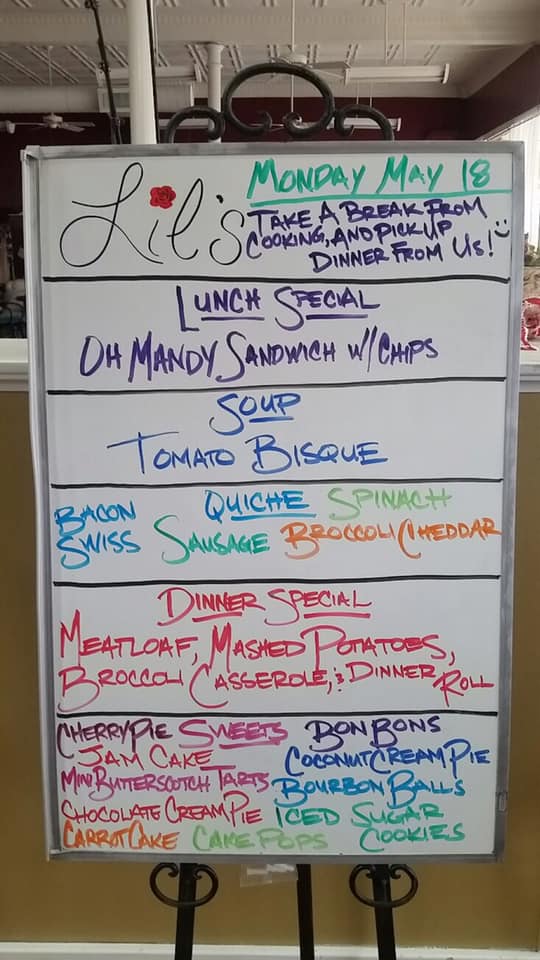 Lil's
MONDAY MAY 18
TAKE A BREAK FROM
COOKING, AND PICK UP
DINNER FROM US!
LUNCH SPECIAL
OH MANDY SANDWICH W/ CHIPS
SOUP
TOMATO BISQUE
QUICHE
BACON
SWISS
SAUSAGE
SPINACH
BROCCOLI CHEDDAR
DINNER SPECIAL
MEATLOAF, MASHED POTATOES,
BROCCOLI CASSEROLE, & DINNER ROLL
SWEETS
CHERRY PIE
JAM CAKE
MINI BUTTERSCOTCH TARTS
CHOCOLATE CREAM PIE
CARROT CAKE
CAKE POPS
BON BONS
COCONUT CREAM PIE
BOURBON BALLS
ICED SUGAR
COOKIES